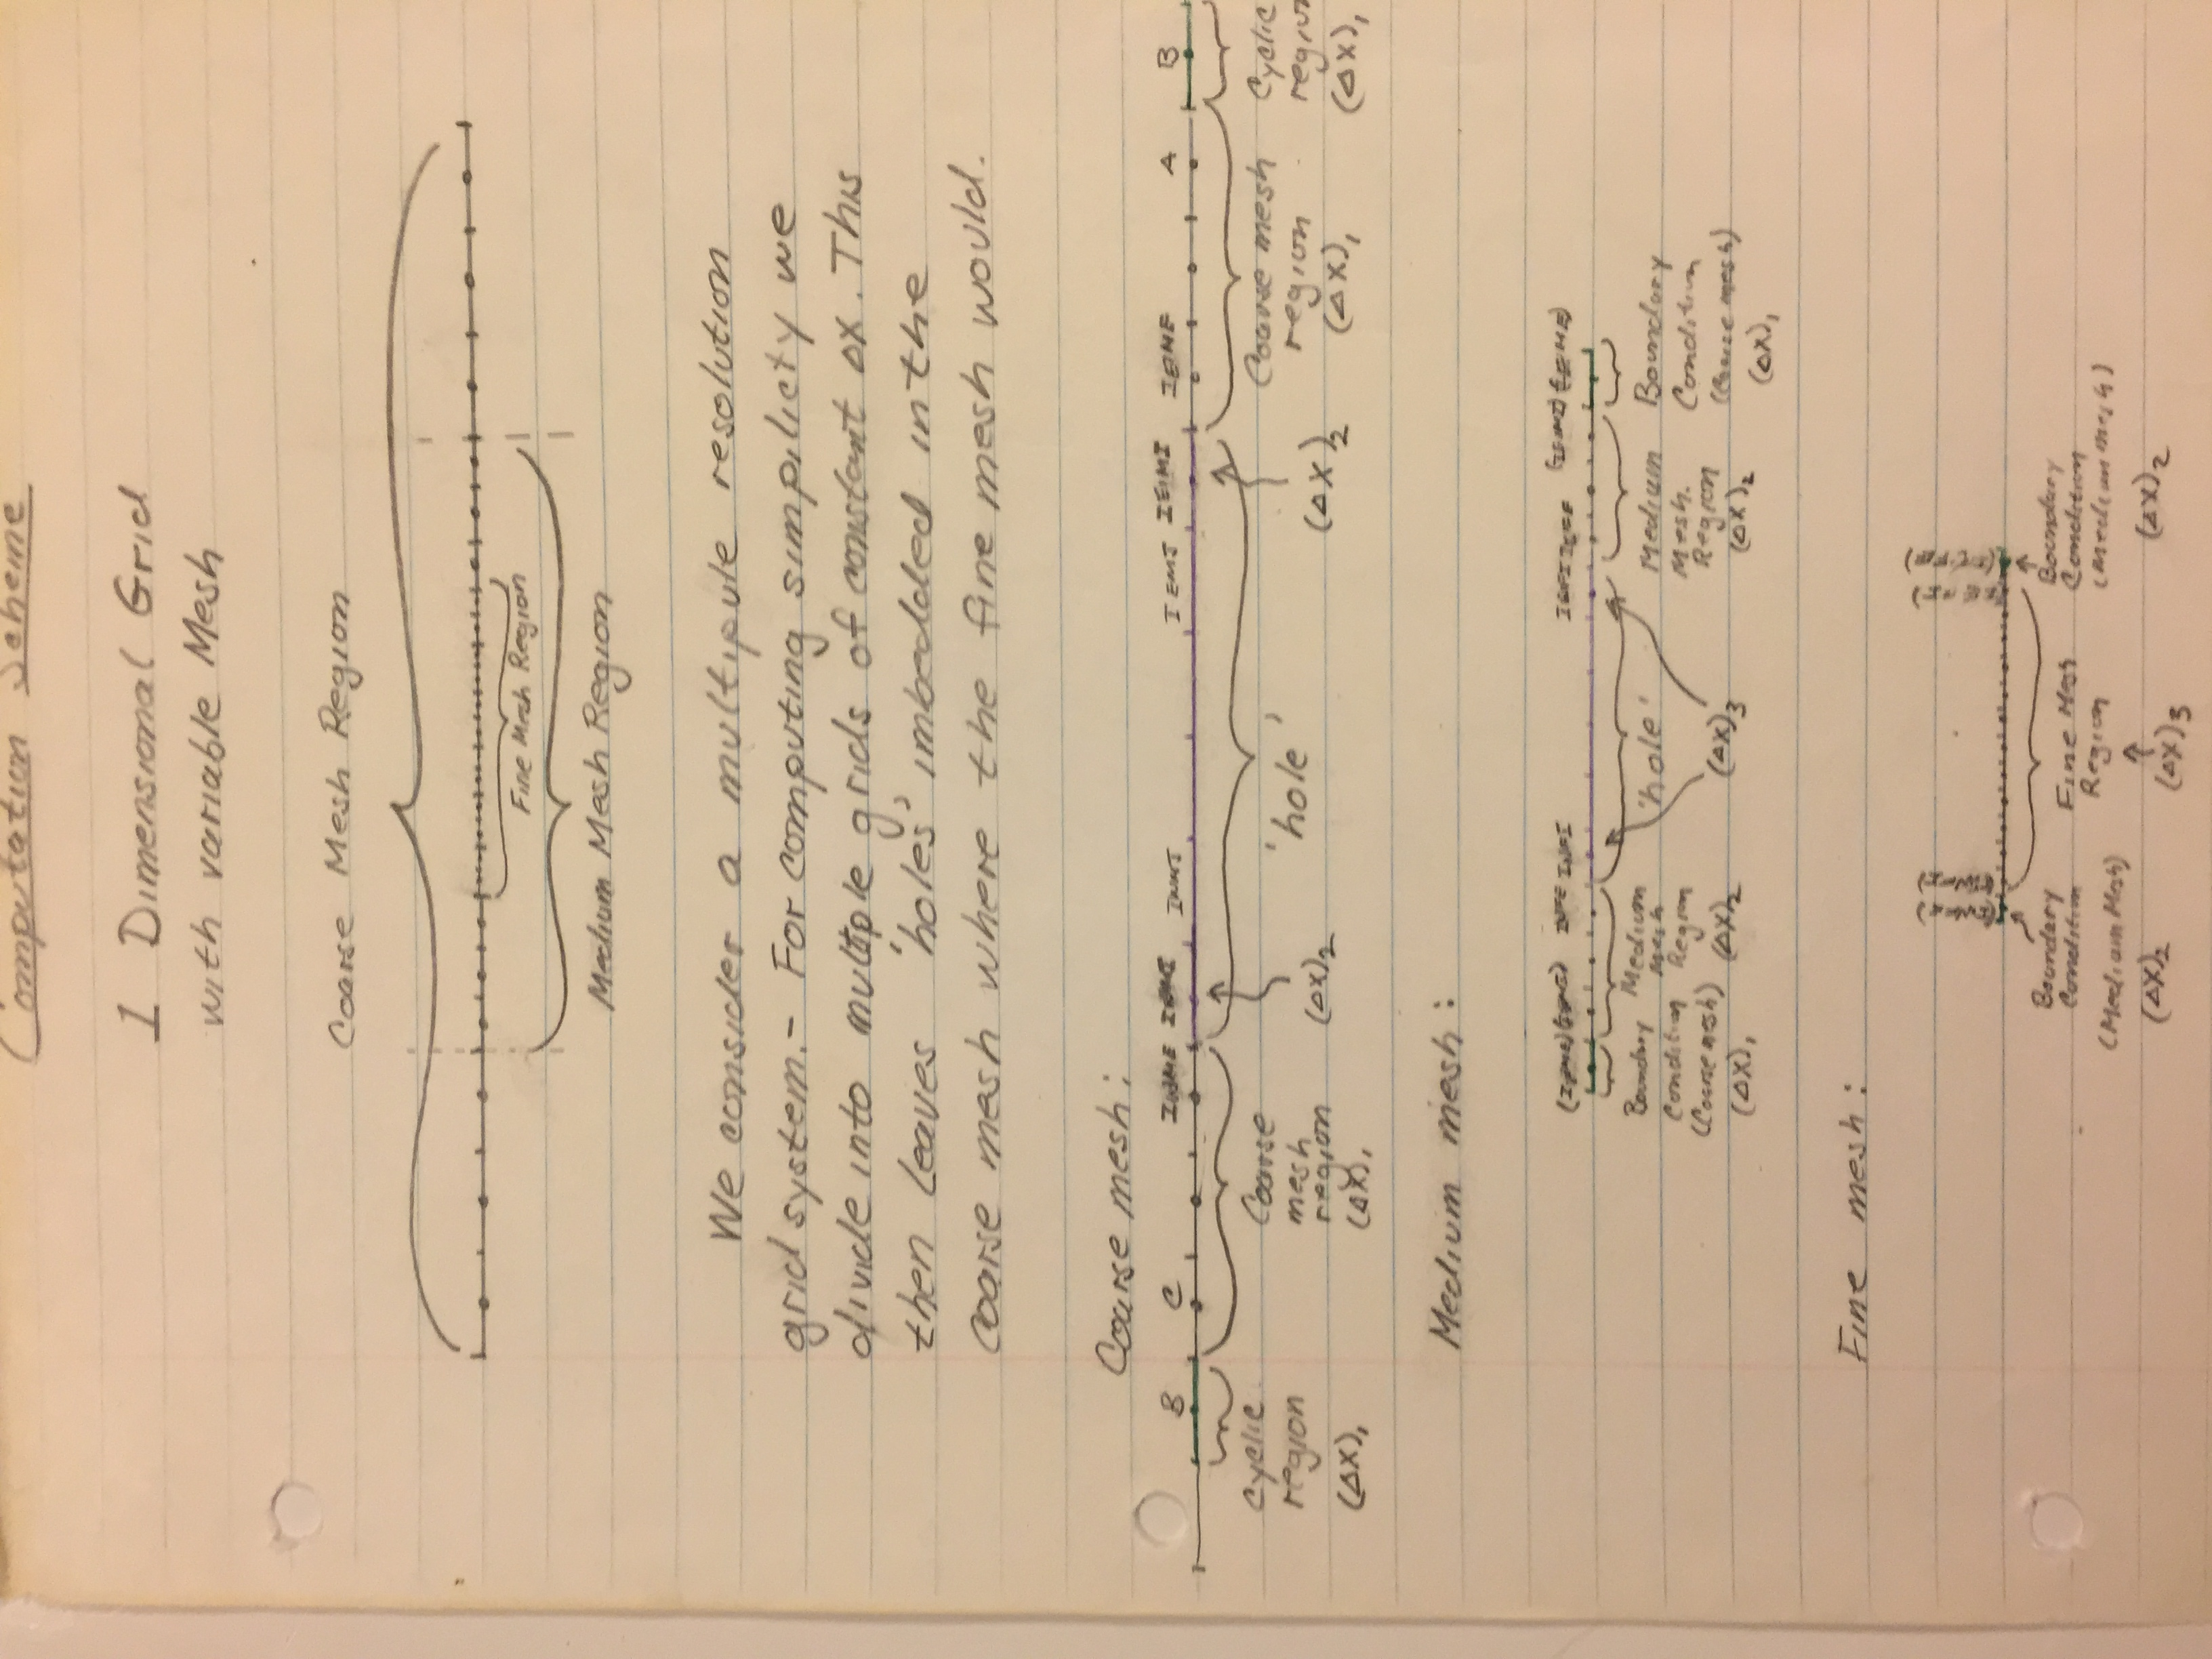 Computation Scheme
1 Dimensional Grid
with variable Mesh
Coarse Mesh Region
Fine Mesh Region
Medium Mesh Region
We consider a multipule resolution
grid system.- For computing simplicity we
divide into multiple grids of constant ΔX. This
then leaves 'holes' imbedded in the
coarse mesh where the fine mesh would.
Coarse mesh:
B C IWMI IEMI IEMI A B
Cyclic region (ΔX)₁
Coarse mesh region (ΔX)₁
(ΔX)₂
'hole'
(ΔX)₂
Coarse mesh region (ΔX)₁
Cyclic region (ΔX)₁
Medium mesh:
Boundary Condition (Coarse mesh) (ΔX)₁
Medium Mesh Region (ΔX)₂
'hole'
(ΔX)₃
Medium Mesh. Region (ΔX)₂
Boundary Condition (Coarse mesh) (ΔX)₁
Fine mesh:
Boundary Condition (Medium Mesh) (ΔX)₂
Fine Mesh Region (ΔX)₃
Boundary Condition (Medium mesh) (ΔX)₂